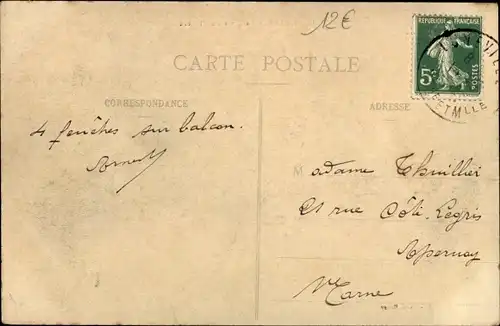 12€
CARTE POSTALE
REPUBLIQUE FRANÇAISE
5c
POSTES
LUNEVILLE
ET MLLE
CORRESPONDANCE
ADRESSE
4 fenêches sur balcon.
Madame Thuillier
21 rue Côté-Legris
Epernay
Marne